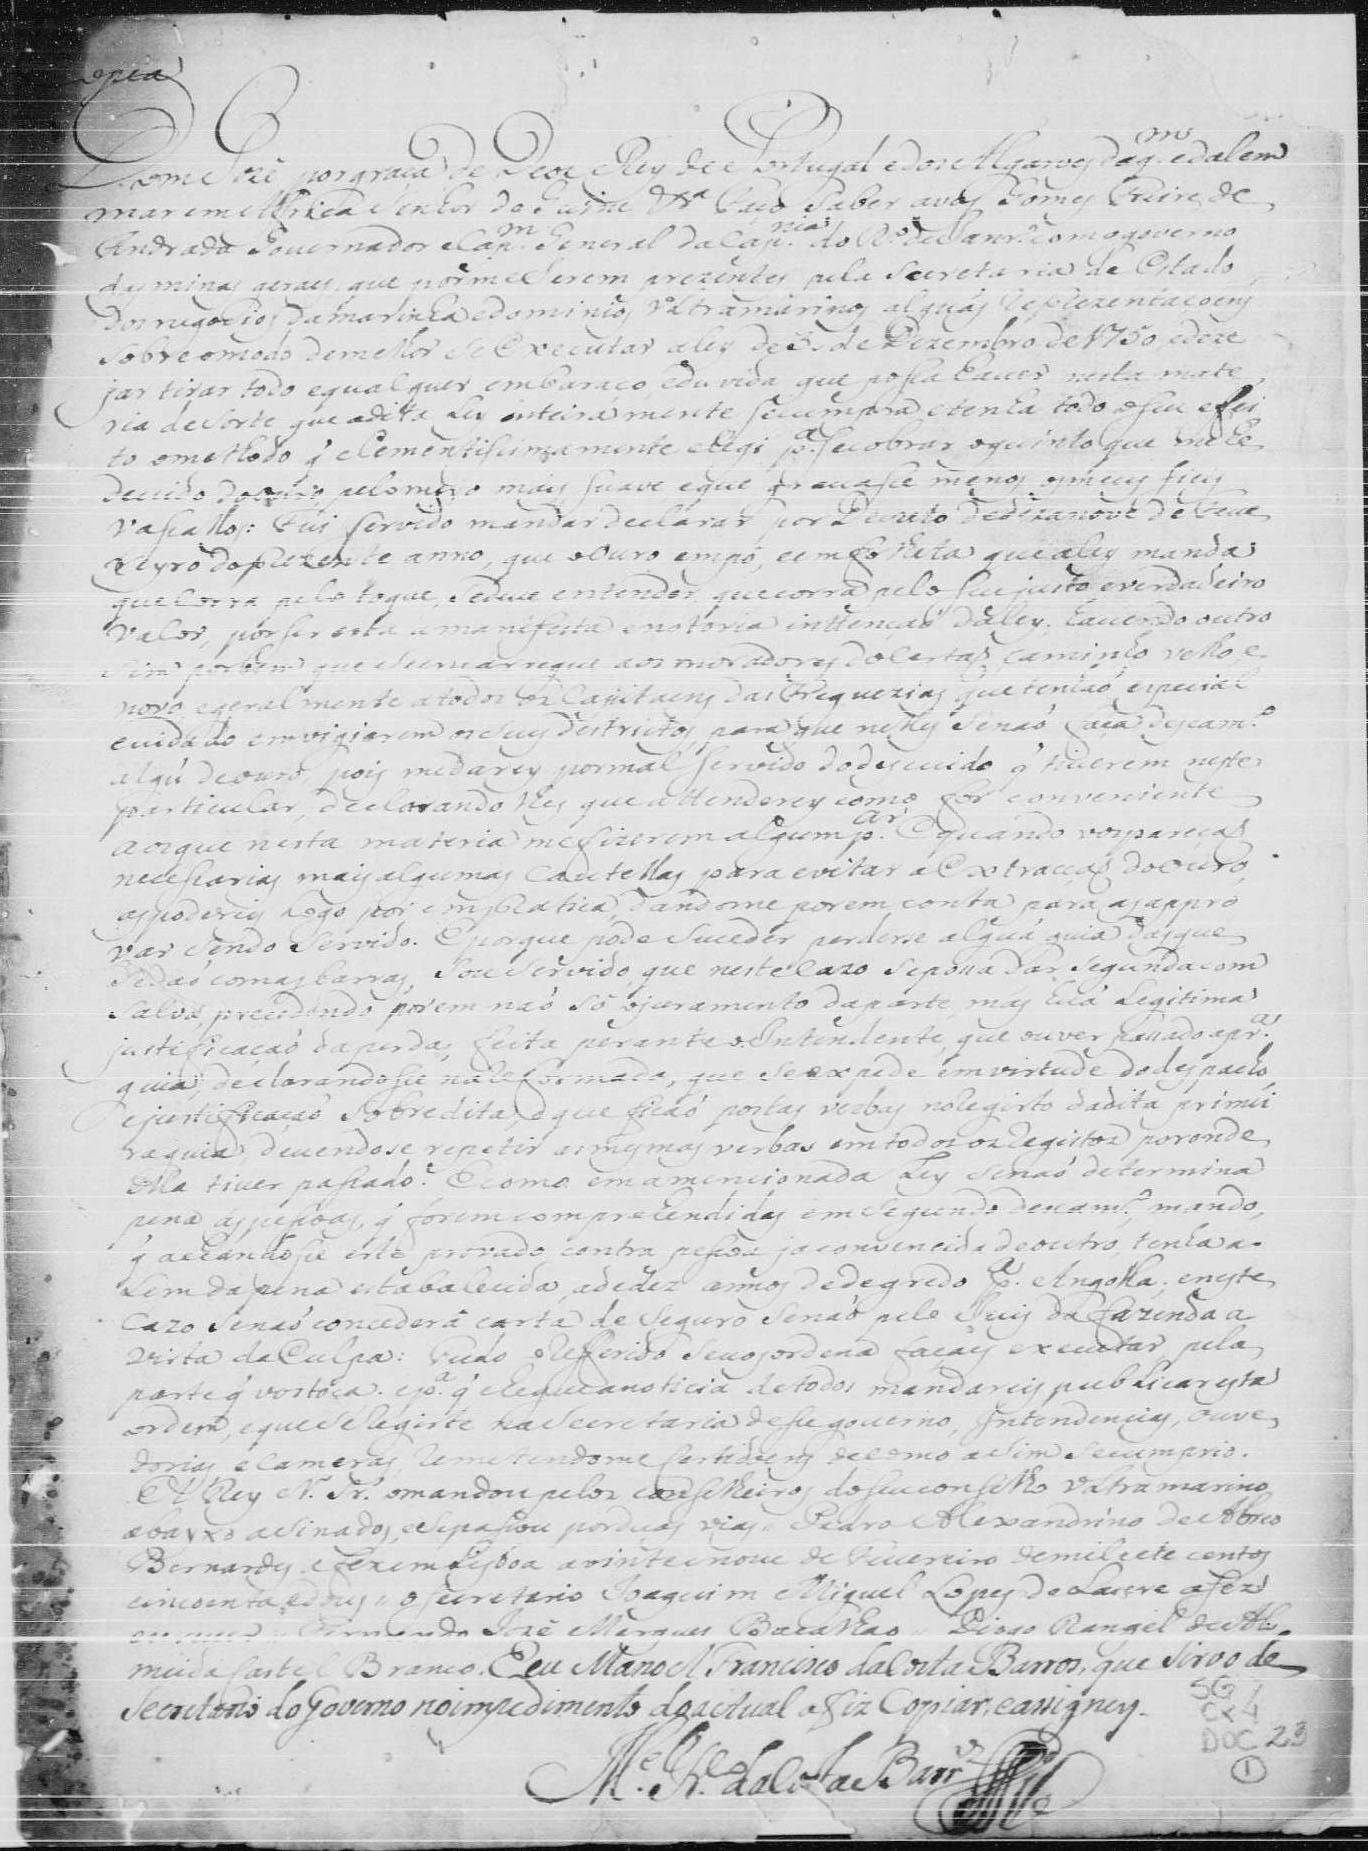 Copia
Dom Jozé por graça de Deos Rey de Portugal e dos Algarves daq.m e dalem
mar em Africa Senhor de Guiné &.ª Faço Saber avós Gomes Freire de
Andrada Governador e Cap.m General da Cap.nia do R.º de Janr.º com o governo
das minas geraes, que por me Serem prezentes pela Secretaria de Estado
dos negocios da marinha e dominios Vltramarinos alguãs Reprezentaçoens
Sobre o modo demelhor Se Executar a ley de 3 de Dezembro de 1750, e deze
jar tirar todo equalquer embaraço, eduvida, que possa haver nesta mate
ria de Sorte que adita Ley inteiramente Secumpra etenha todo oseu efei
to o methodo q̃ clementissimamente elegi p.ª Secobrar oquinto que me hé
devido do ouro pelo meyo mais Suave eque gravasse menos osmeus fieis
Vassallos: Fui Servido mandar declarar por Decreto de dezanove de Feve
reyro doprezente anno, que o Ouro empó, eem folheta que aley manda
que Corra pelo toque, Sedeve entender, que corra pelo Seu justo e verdadeiro
Valor, por ser esta a manifesta enotoria intenção daley. Havendo outro
Sim por bem que Seencarregue aos moradores do Certaõ, Caminho velho, e
novo, egeralmente atodos os Capitaens das Freguezias que tenhaõ especial
cuidado em vigiarem os Seus destrictos, para que nelles Senaõ faça descam.º
algũ de ouro, pois medarey por mal Servido do descuido q̃ tiverem neste
particular, declarando lhes que attenderey como for conveniente
aos que nesta materia mefizerem algum p.ar E quando vos pareçaõ
necessarias mais algumas Cautellas para evitar a Extracçaõ do Ouro,
as podereis Logo pôr em pratica, dandome porem conta para as appro
var Sendo Servido. E porque póde Suceder perderse alguã guia das que
Sedaõ com as barras, Sou Servido, que neste Cazo Sepossa dar Segunda com
Salva, precedendo porem naõ Só o juramento da parte, mas huã Legitima
justificaçaõ da perda, feita perante o Intendente, que ouver passado apr.ª
guia, declarandose na reformada, que Seexpede em virtude do despacho,
e justificaçaõ Sobredita, eque ficaõ postas verbas noRegisto dadita primei
ra guia, devendose repetir as mesmas verbas em todos os Registos por onde
ella tiver passado. E como em a mencionada Ley Senaõ determina
pena ás pessoas, q̃ forem comprehendidas em Segundo descam.º, mando,
q̃ achandose este provado contra pessoa ja convencida de outro, tenha a
Lem da pena estabalecida, a de dez annos de degredo p.ª Angolla, eneste
Cazo Senaõ concederá carta de Seguro Senaõ pelo Juiz da fazenda a
vista da Culpa: Tudo o Referido Sevos ordena façaes executar pela
parte q̃ vos toca. e p.ª q̃ chegue a noticia de todos mandareis publicar esta
ordem, e que Se Registe na Secretaria desse governo, Intendencias, ouve
dorias e Cameras, Remetendome Certidoens de como asim Secumprio.
El Rey N. Sr. o mandou pelos conselheiros do seu conselho Vltramarino
abaixo asinados, e sepassou por duas vias. Pedro Alexandrino de Abreo
Bernardes a fez em Lisboa a vinte e nove de Fevereiro de mil e sete centos
cincoenta e dous. O Secretario Joaquim Miguel Lopes de Lavre a fez
escrever. Fernando Jozé Marques Bacalhao. Diogo Rangel de Al
meida Castel Branco. E eu Manoel Francisco da Costa Barros, que Sirvo de
Secretario do Governo no impedimento do actual a fiz Copiar, e assigney.
M.el Fr.co da Costa Barr.os
SG
CX 4
DOC 23
1